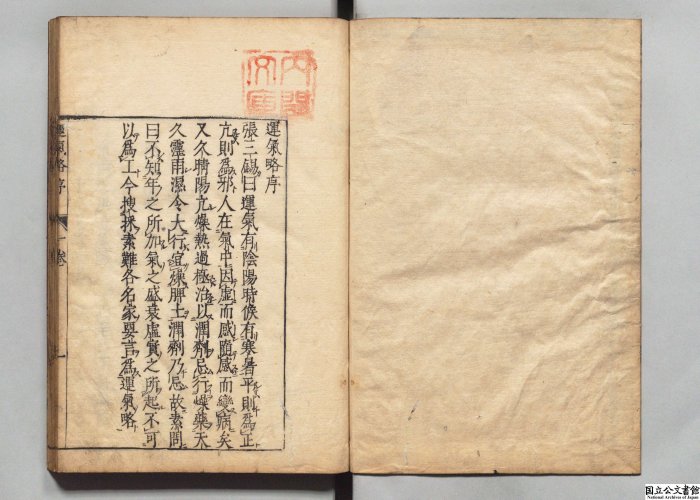 運氣略序
張三錫曰運氣有陰陽時候有寒暑平則爲正
亢則爲邪人在氣中因虛而感隨感而變病矣
又久晴陽亢燥熱過極治以潤劑忌行燥藥天
久霪雨濕令大行宜燥脾土潤劑乃忌故素問
曰不知年之所加氣之盛衰虛實之所起不可
以爲工今搜採素難各名家要言爲運氣略
運氣略序
一卷
一
內閣文庫
国立公文書館
National Archives of Japan